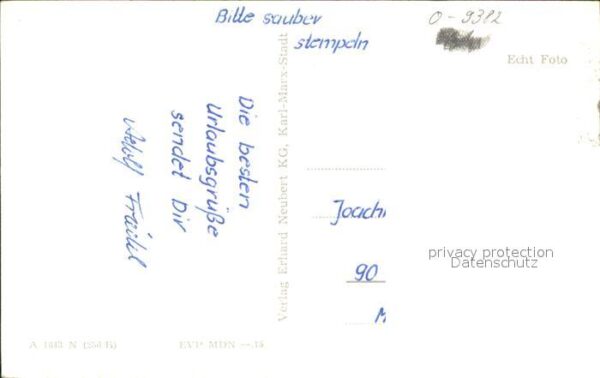 Bitte sauber
stempeln
0-9312
Echt Foto
Die besten
Urlaubsgrüße
sendet Dir
Adolf
Verlag Erhard Neubert KG, Karl-Marx-Stadt
Joachi
90
M
privacy protection
Datenschutz
EVP MDN